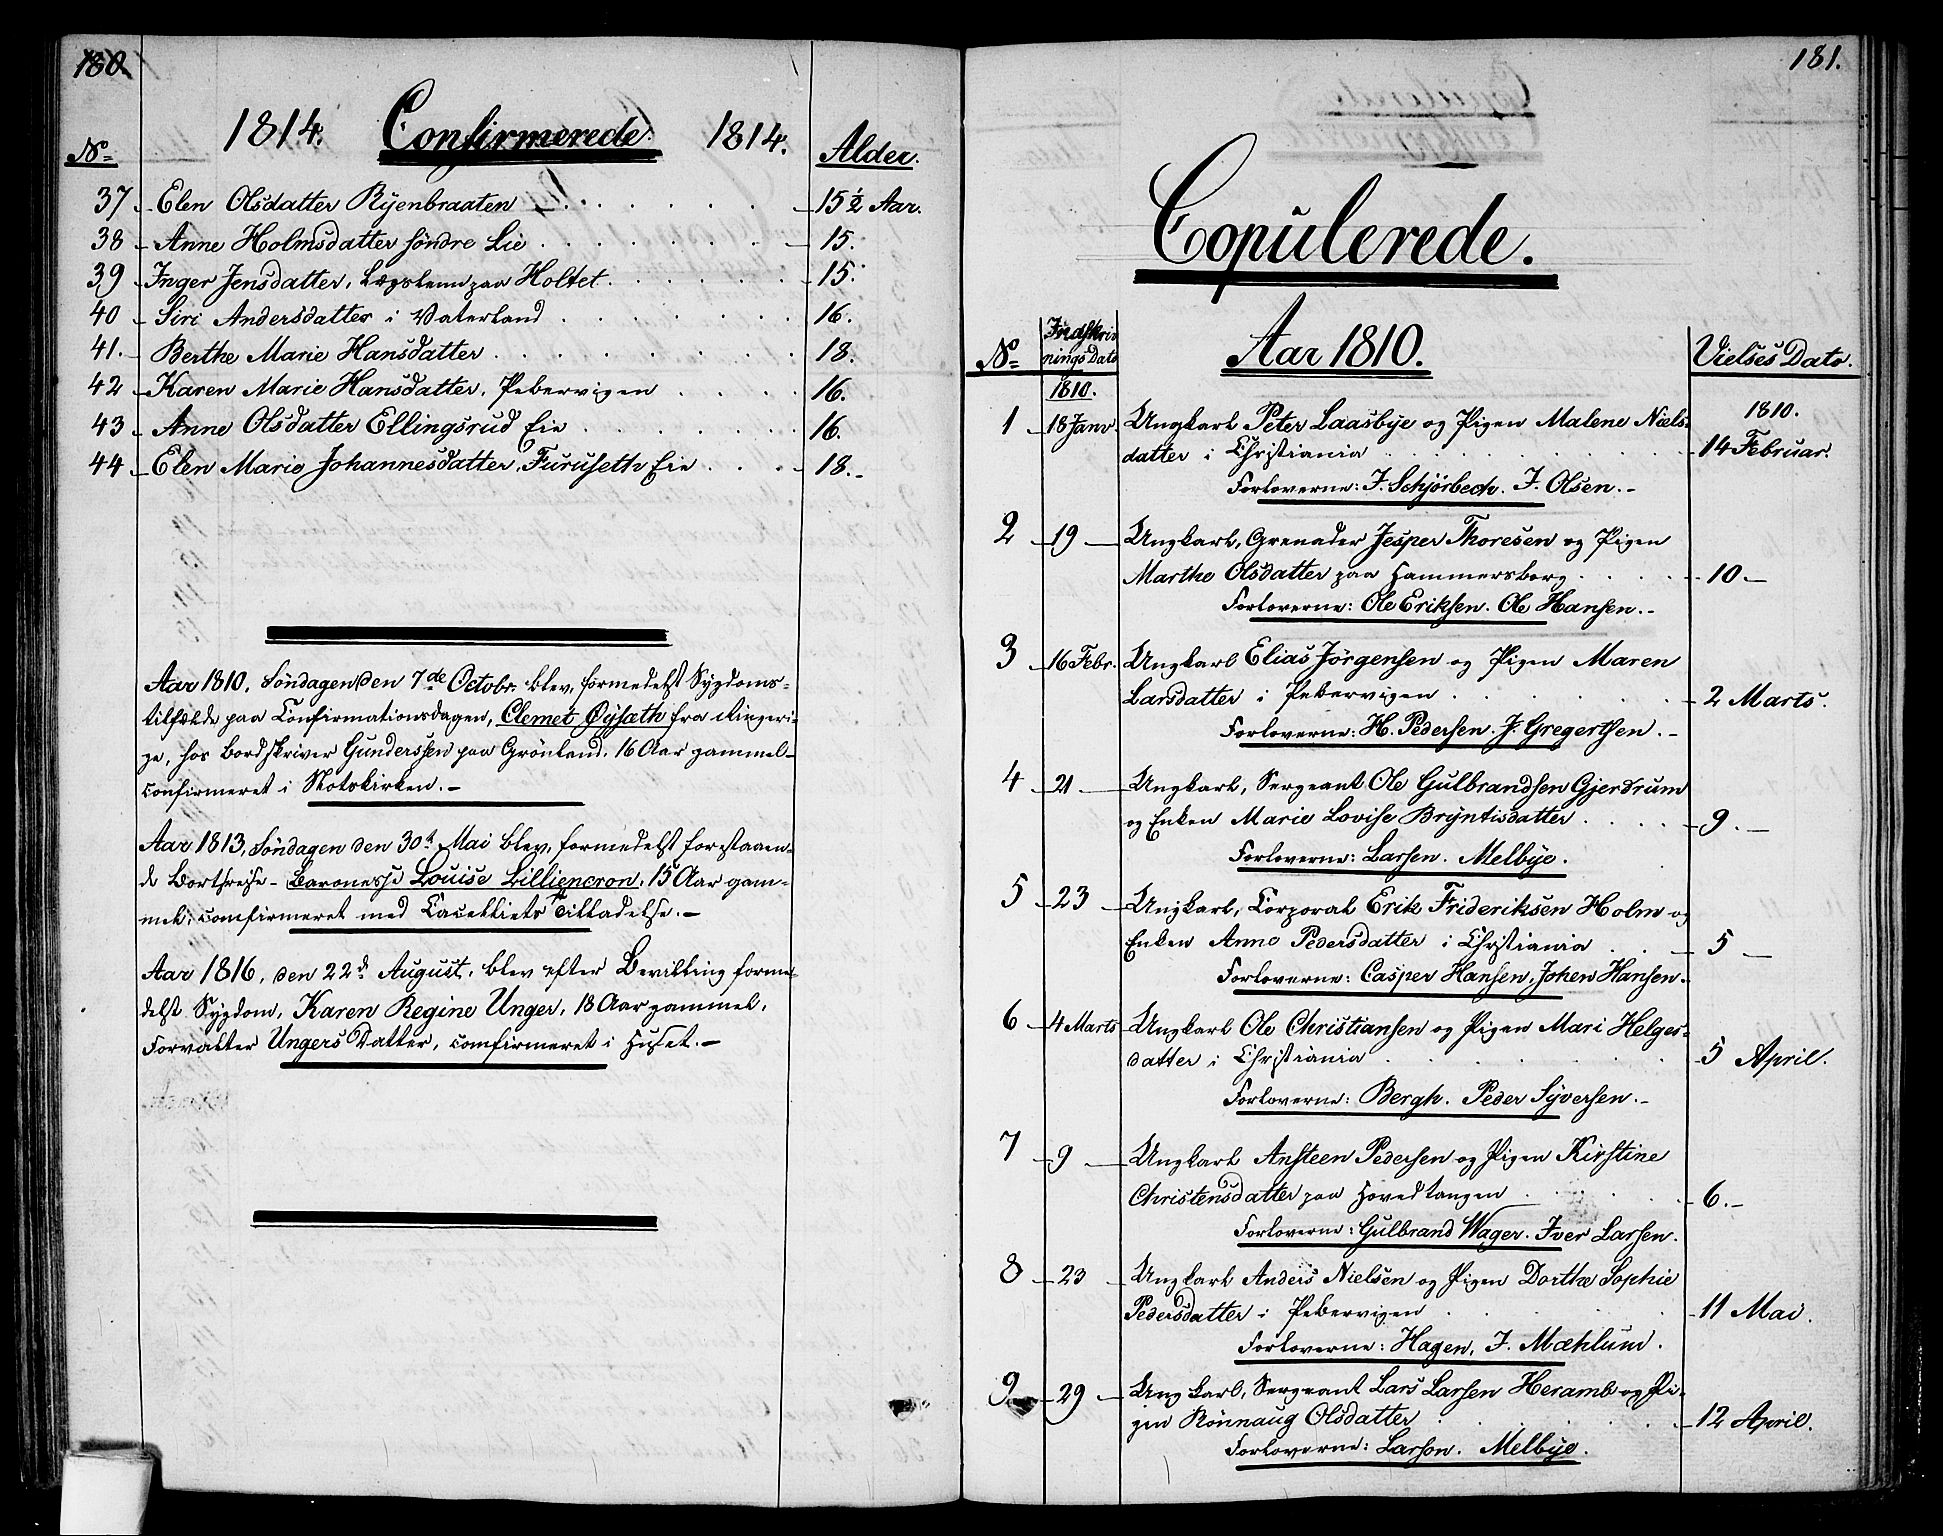 180.
1814. Confirmerede. 1814.
No Alder.
37 Elen Olsdatter Ryenbraaten 15½ Aar.
38 Anne Holmsdatter söndre Lie 15.
39 Inger Jensdatter, Løgsteun paa Holtet 15.
40 Siri Andersdatter i Vaterland 16.
41. Berthe Marie Hansdatter 18.
42 Karen Marie Hansdatter, Pebervigen 16.
43 Anne Olsdatter Ellingsrud Eie 16.
44 Elen Marie Johannesdatter, Furuseth Eie 18.
Aar 1810, Söndagen den 7de Octobr. blev, formedelst Sygdoms-
tilfælde paa Confirmationsdagen, Clemet Øysæth fra Ringeri-
ge, hos Bordskriver Gunderssen paa Grönland, 16 Aar gammel
confirmeret i Slotskirken.
Aar 1813, Söndagen den 30d Mai blev, formedelst forestaaen-
de Bortreise - Baronesse Louise Lilliencron, 15 Aar gam-
mel, confirmeret med Cancelliets Tilladelse.
Aar 1816, den 22d August, blev efter Bevilling forme-
delst Sygdom, Karen Regine Unger, 18 Aar gammel,
Forvalter Ungers Datter, confirmeret i Huset.
181.
Copulerede.
Aar 1810.
No Indskriv-
nings Dato Vielses Dato.
1810. 1810.
1 18 Janv. Ungkarl Peter Laasbye og Pigen Malene Niels-
datter i Christiania 14 Februar.
Forloverne: J. Schjørbech. J. Olsen.
2 19 Ungkarl, Grenader Jesper Thoresen og Pigen
Marthe Olsdatter paa Hammersborg 10
Forloverne: Ole Eriksen. Ole Hansen.
3 16 Febr. Ungkarl Elias Jörgensen og Pigen Maren
Larsdatter i Pebervigen 2 Marts.
Forloverne: H. Pedersen. J. Gregertsen.
4 21 Ungkarl, Sergeant Ole Gulbrandsen Gjerdrum
og Enken Marie Lovise Bryntisdatter 9.
Forloverne: Larsen. Melbye.
5 23 Ungkarl, Corporal Erik Frideriksen Holm og
Enken Anne Pedersdatter i Christiania 5
Forloverne: Casper Hansen, Johen Hansen.
6 4 Marts Ungkarl Ole Christiansen og Pigen Mari Helges-
datter i Christiania 5 April.
Forloverne: Bergh. Peder Syversen.
7 9 Ungkarl Ansteen Pedersen og Pigen Kirstine
Christensdatter paa Hovedtangen 6.
Forloverne: Gulbrand Wager. Iver Larsen.
8 23 Ungkarl Anders Nielsen og Pigen Dorthe Sophie
Pedersdatter i Pebervigen 11 Mai.
Forloverne: Hagen, J. Mæhlum.
9 29 Ungkarl, Sergeant Lars Larsen Heramb og Pi-
gen Rönnaug Olsdatter 12 April.
Forloverne: Larson. Melbye.